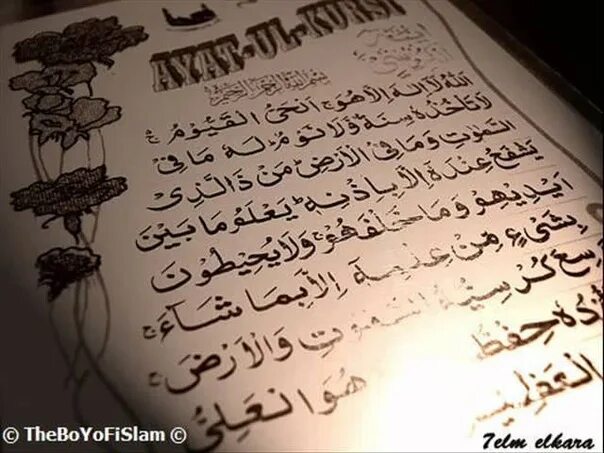 AYAT-UL-KURSI
بسم الله الرحمن الرحيم
اَللّٰهُ لَآ اِلٰهَ اِلَّا هُوَ اَلْحَيُّ الْقَيُّوْمُ ۚ
لَا تَأْخُذُهٗ سِنَةٌ وَّلَا نَوْمٌ ؕ لَهٗ مَا فِي
السَّمٰوٰتِ وَمَا فِي الْاَرْضِ ؕ مَنْ ذَا الَّذِيْ
يَشْفَعُ عِنْدَهٗٓ اِلَّا بِاِذْنِهٖ ؕ يَعْلَمُ مَا بَيْنَ
اَيْدِيْهِمْ وَمَا خَلْفَهُمْ ۚ وَلَا يُحِيْطُوْنَ
بِشَيْءٍ مِّنْ عِلْمِهٖٓ اِلَّا بِمَا شَآءَ ۚ
سِعَ كُرْسِيُّهُ السَّمٰوٰتِ وَالْاَرْضَ ۚ
ـُٔدُهٗ حِفْظُ هُوَ الْعَلِيُّ
الْعَظِيْمُ
© TheBoYoFiSlam ©
7elm elkara